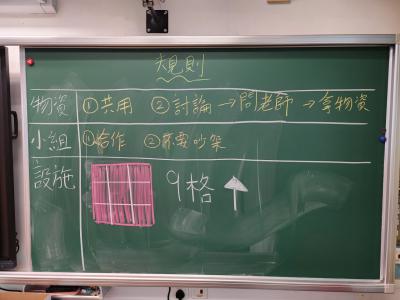 規則
物資 ①共用 ②討論→問老師→拿物資
小組 ①合作 ②不要吵架
設施 9格 ↑